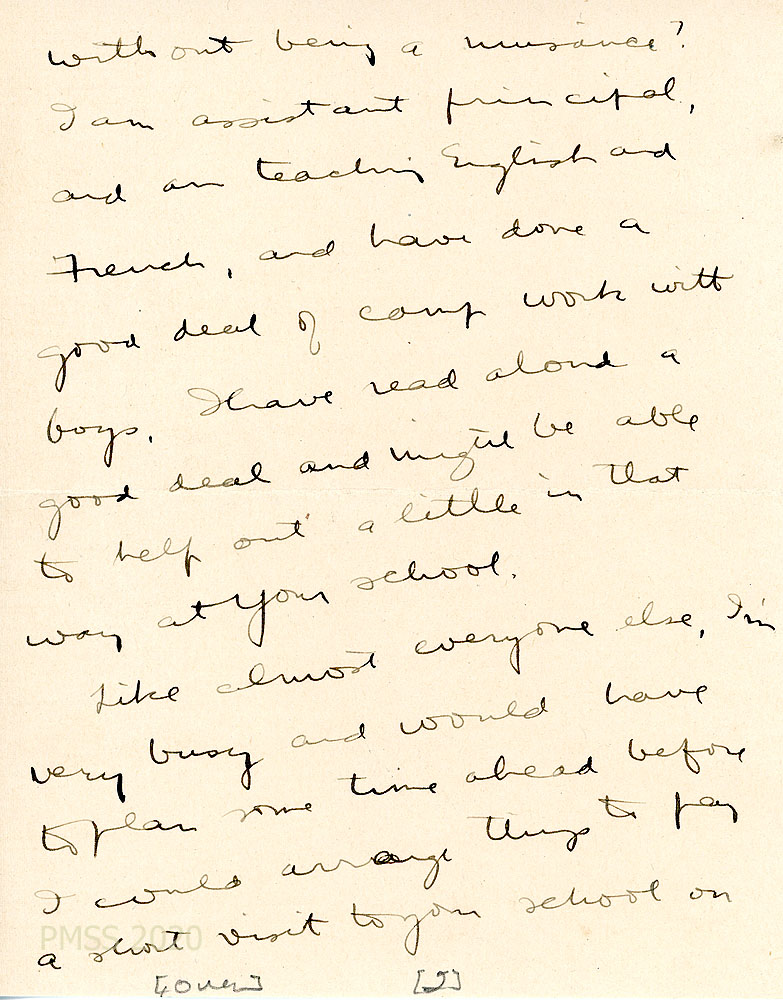 without being a nuisance?
I am assistant principal,
and am teaching English and
French, and have done a
good deal of camp work with
boys. I have read aloud a
good deal and might be able
to help out a little in that
way at your school.
Like almost everyone else, I'm
very busy and would have
to plan some time ahead before
I could arrange things to pay
a short visit to your school on
PMSS 2020
[Over] [2]